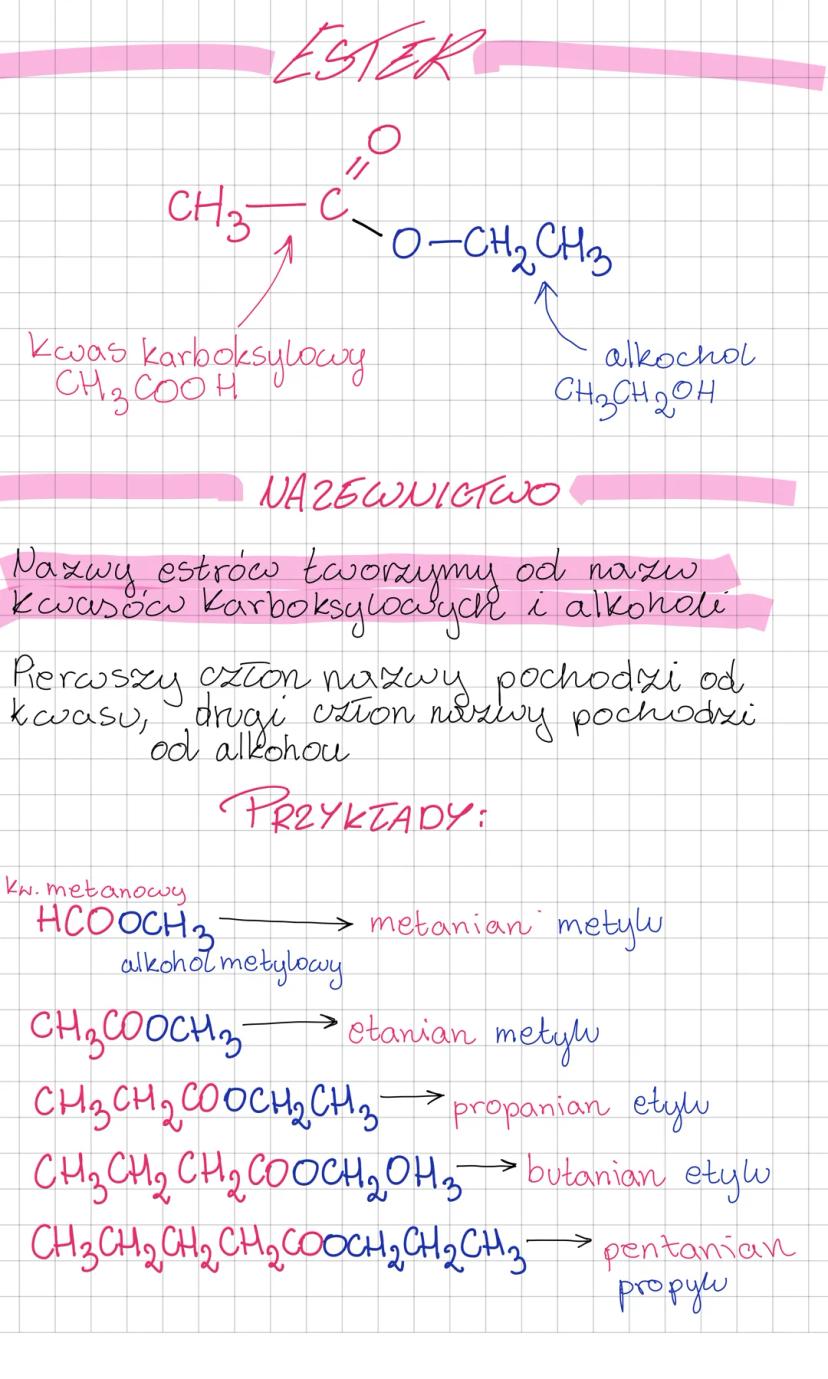 ESTER
O
CH₃—C
O—CH₂CH₃
kwas karboksylowy
CH₃COOH
alkochol
CH₃CH₂OH
NAZEWNICTWO
Nazwy estrów tworzymy od nazw
kwasów karboksylowych i alkoholi
Pierwszy człon nazwy pochodzi od
kwasu, drugi człon nazwy pochodzi
od alkohou
PRZYKŁADY:
kw. metanowy
HCOOCH₃ → metanian metylu
alkohol metylowy
CH₃COOCH₃ → etanian metylu
CH₃CH₂COOCH₂CH₃ → propanian etylu
CH₃CH₂CH₂COOCH₂OH₃ → butanian etylu
CH₃CH₂CH₂CH₂COOCH₂CH₂CH₃ → pentanian
propylu